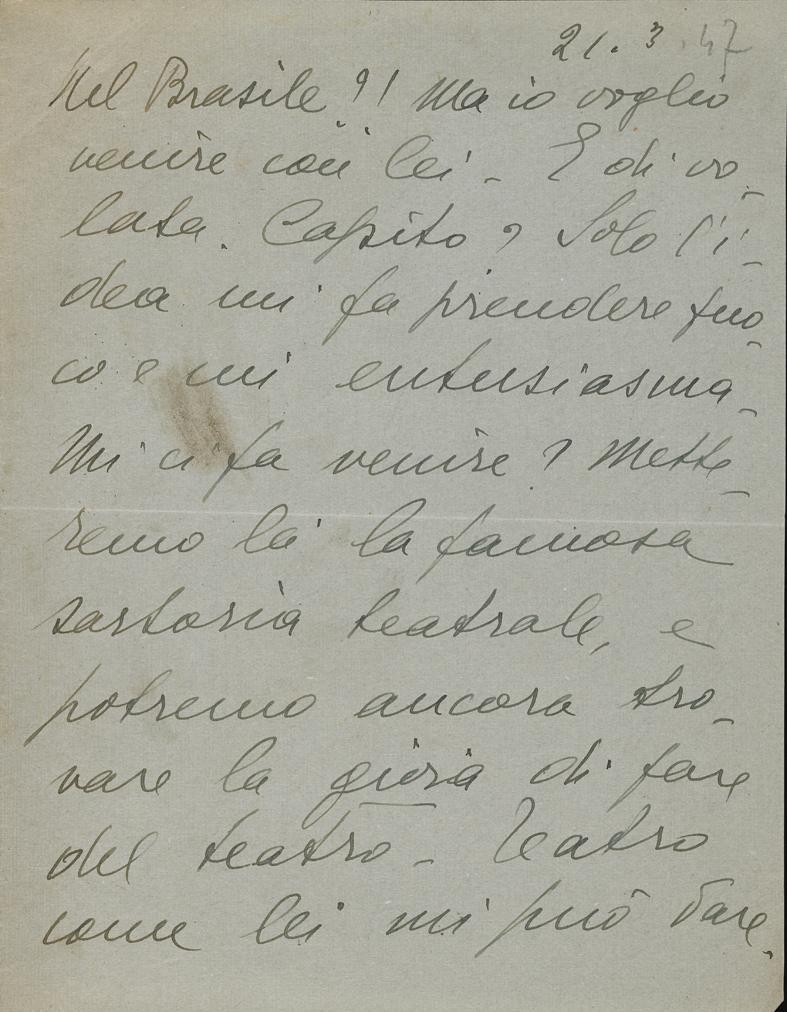 21.3.47
Nel Brasile?! Ma io voglio
venire con lei - E di vo-
lata. Capito? Solo l'i-
dea mi fa prendere fuo-
co e mi entusiasma -
Mi ci fa venire? Mette-
remo là la famosa
sartoria teatrale, e
potremo ancora tro-
vare la gioia di fare
del teatro - Teatro
come lei mi può dare,